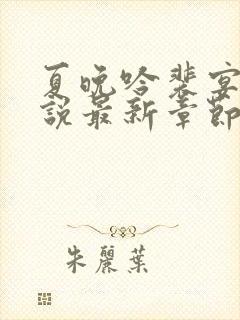 夏晚吟裴宴
說最新章節
朱麗葉